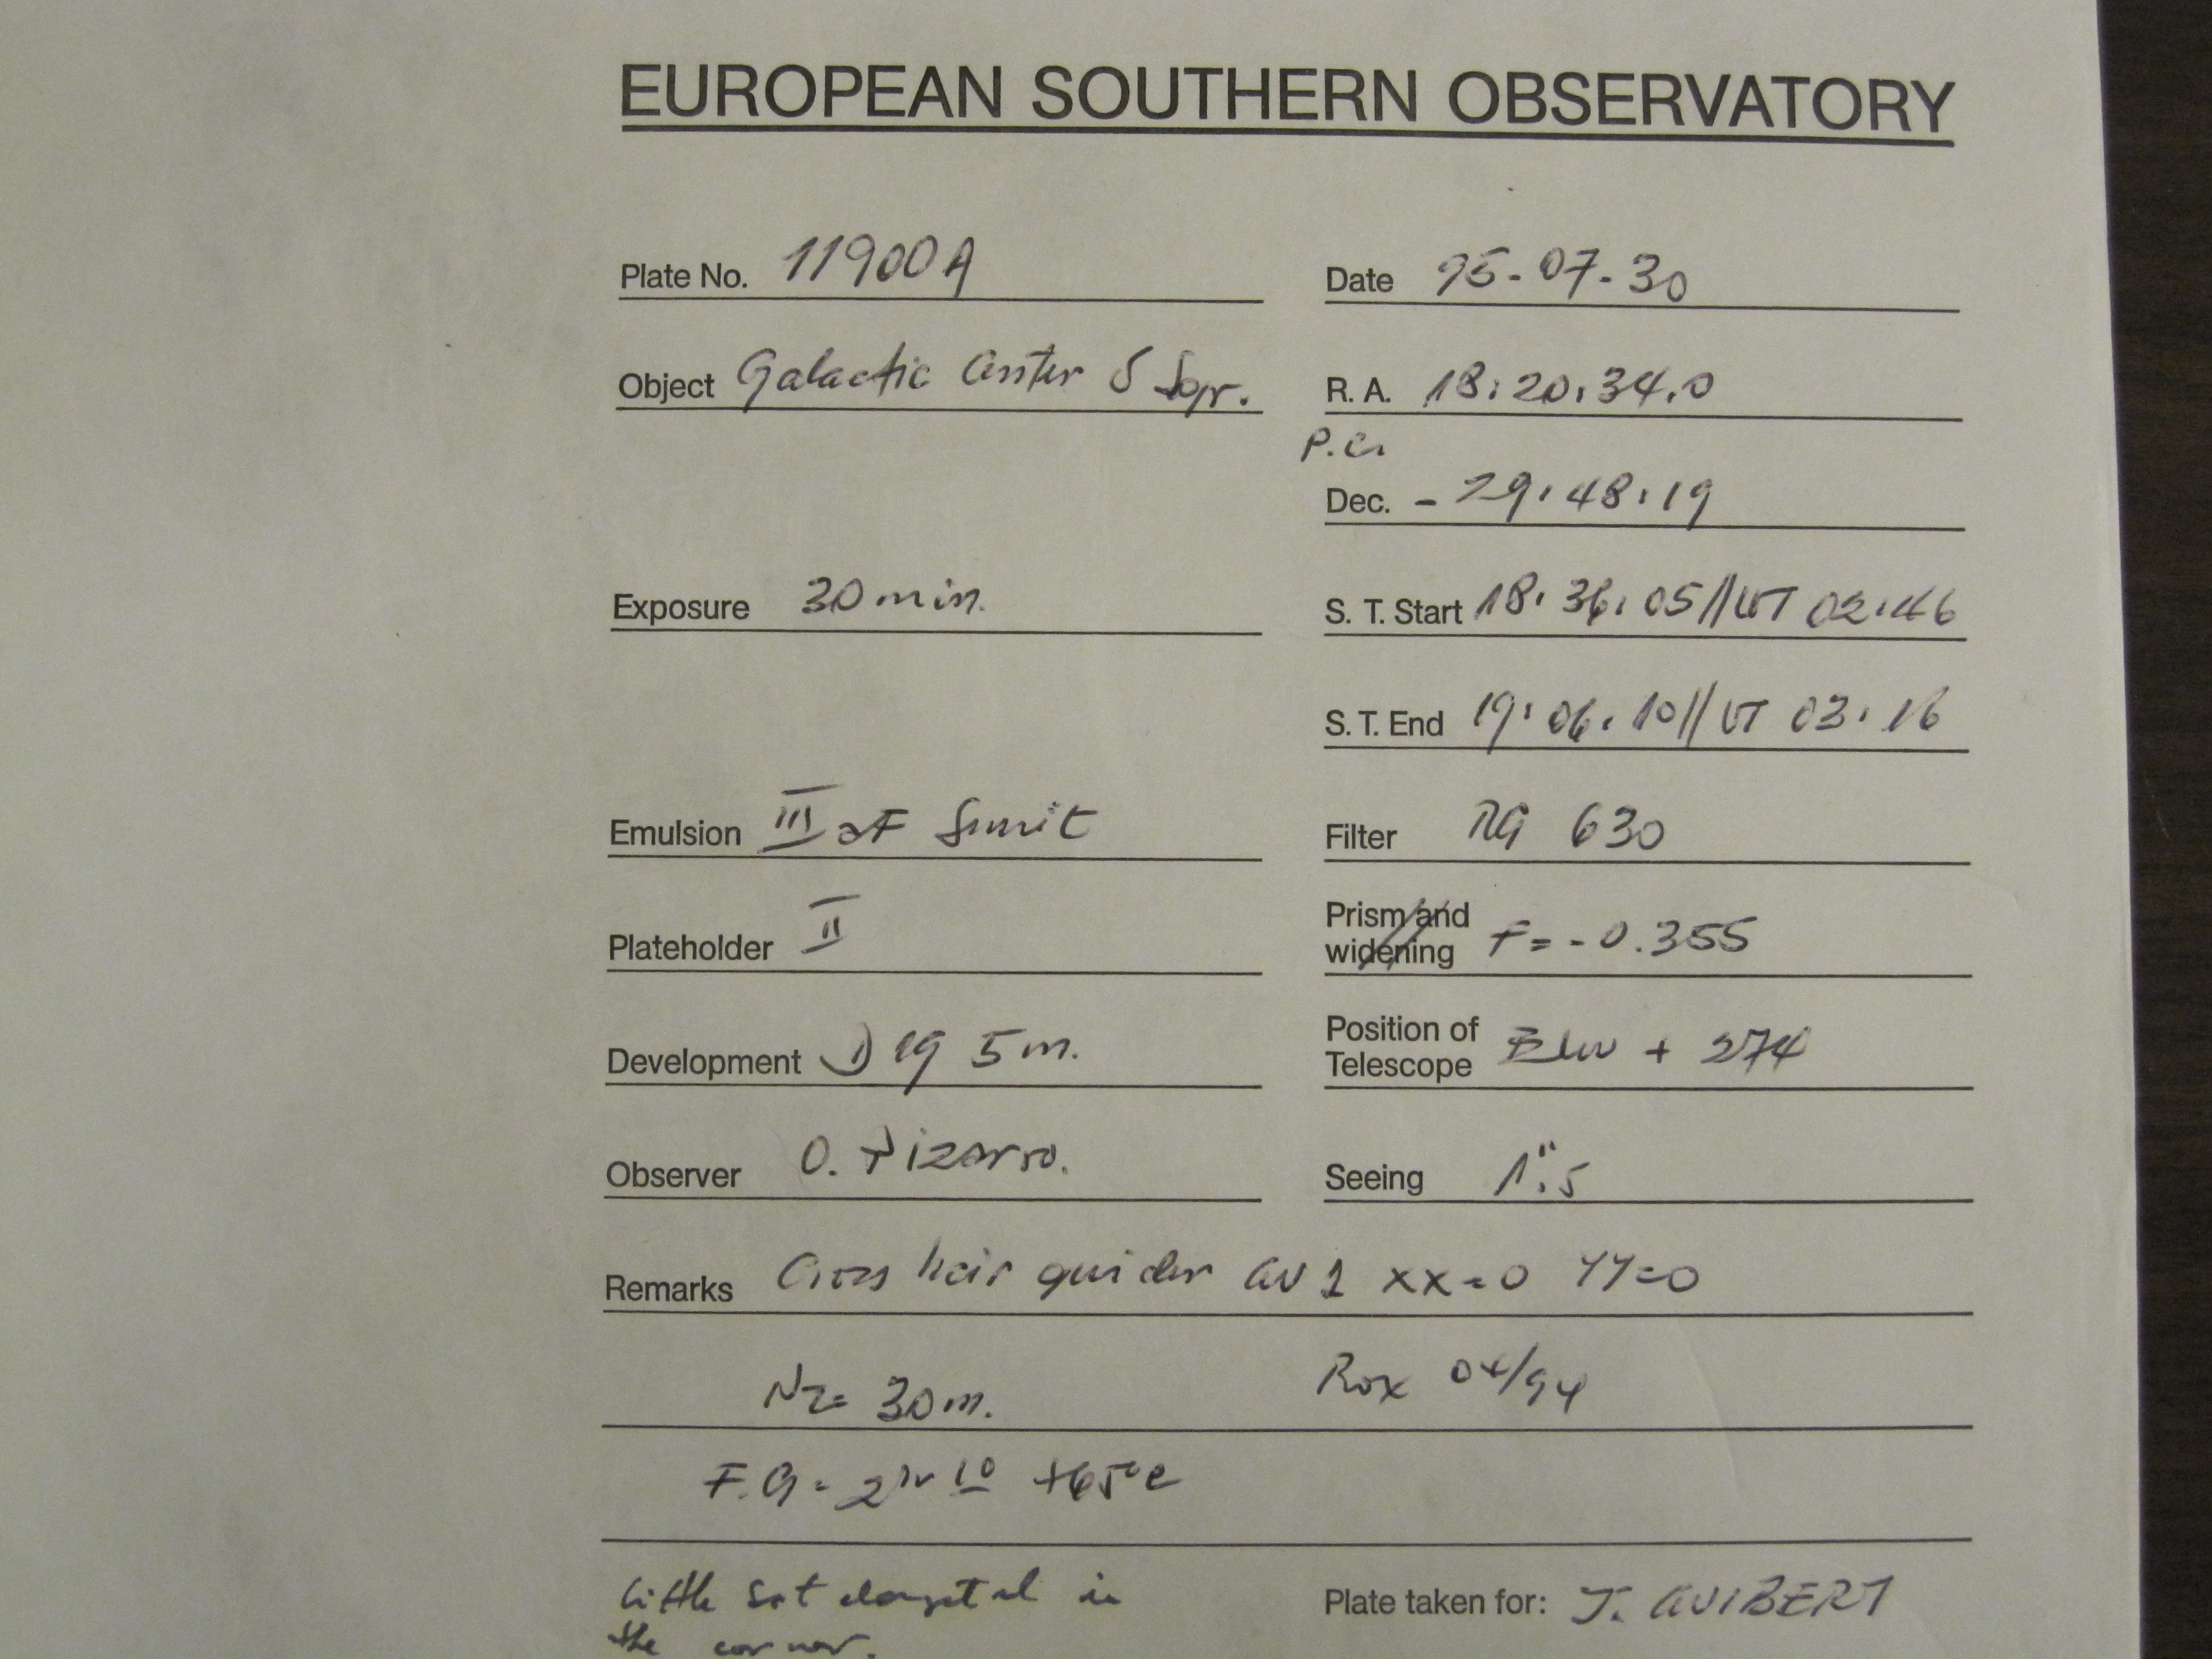 EUROPEAN SOUTHERN OBSERVATORY
Plate No. 11900A
Date 95-07-30
Object Galactic Center S Sgr.
R. A. 18:20:34.0
P.C.
Dec. - 29:48:19
Exposure 30 min.
S. T. Start 18:36:05//UT 02:46
S. T. End 19:06:10//UT 03:16
Emulsion III aF
Filter RG 630
Plateholder II
Prism and widening F= -0.355
Development D 19 5 m.
Position of Telescope + 274
Observer O. Pizarro.
Seeing 1".5
Remarks Cross hair guider GV 1 XX=0 YY=0
N2= 30 m.
Box 04/94
F.G = 2 hr 10 +65°C
little elongated in
the corner.
Plate taken for: J. GUIBERT